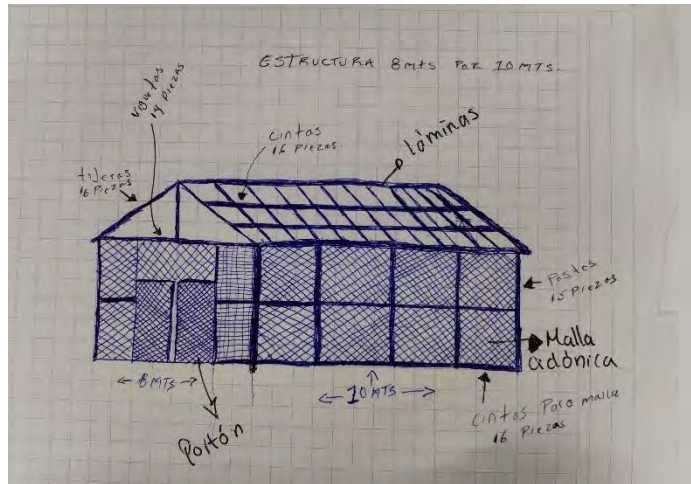 ESTRUCTURA 8mts POR 10 MTS.
viguetas
14 Piezas
cintas
16 Piezas.
láminas
tijeras
16 Piezas
Postes
15 Piezas
Malla
cidónica
← 8 MTS →
← 10 MTS →
Portón
cintas Para malla
16 Piezas